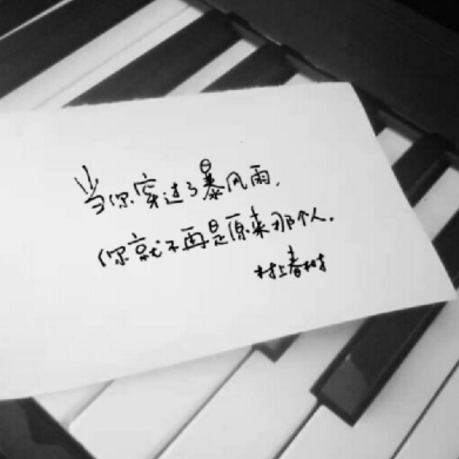 当你穿过了暴风雨,
你就不再是原来那个人.
村上春树